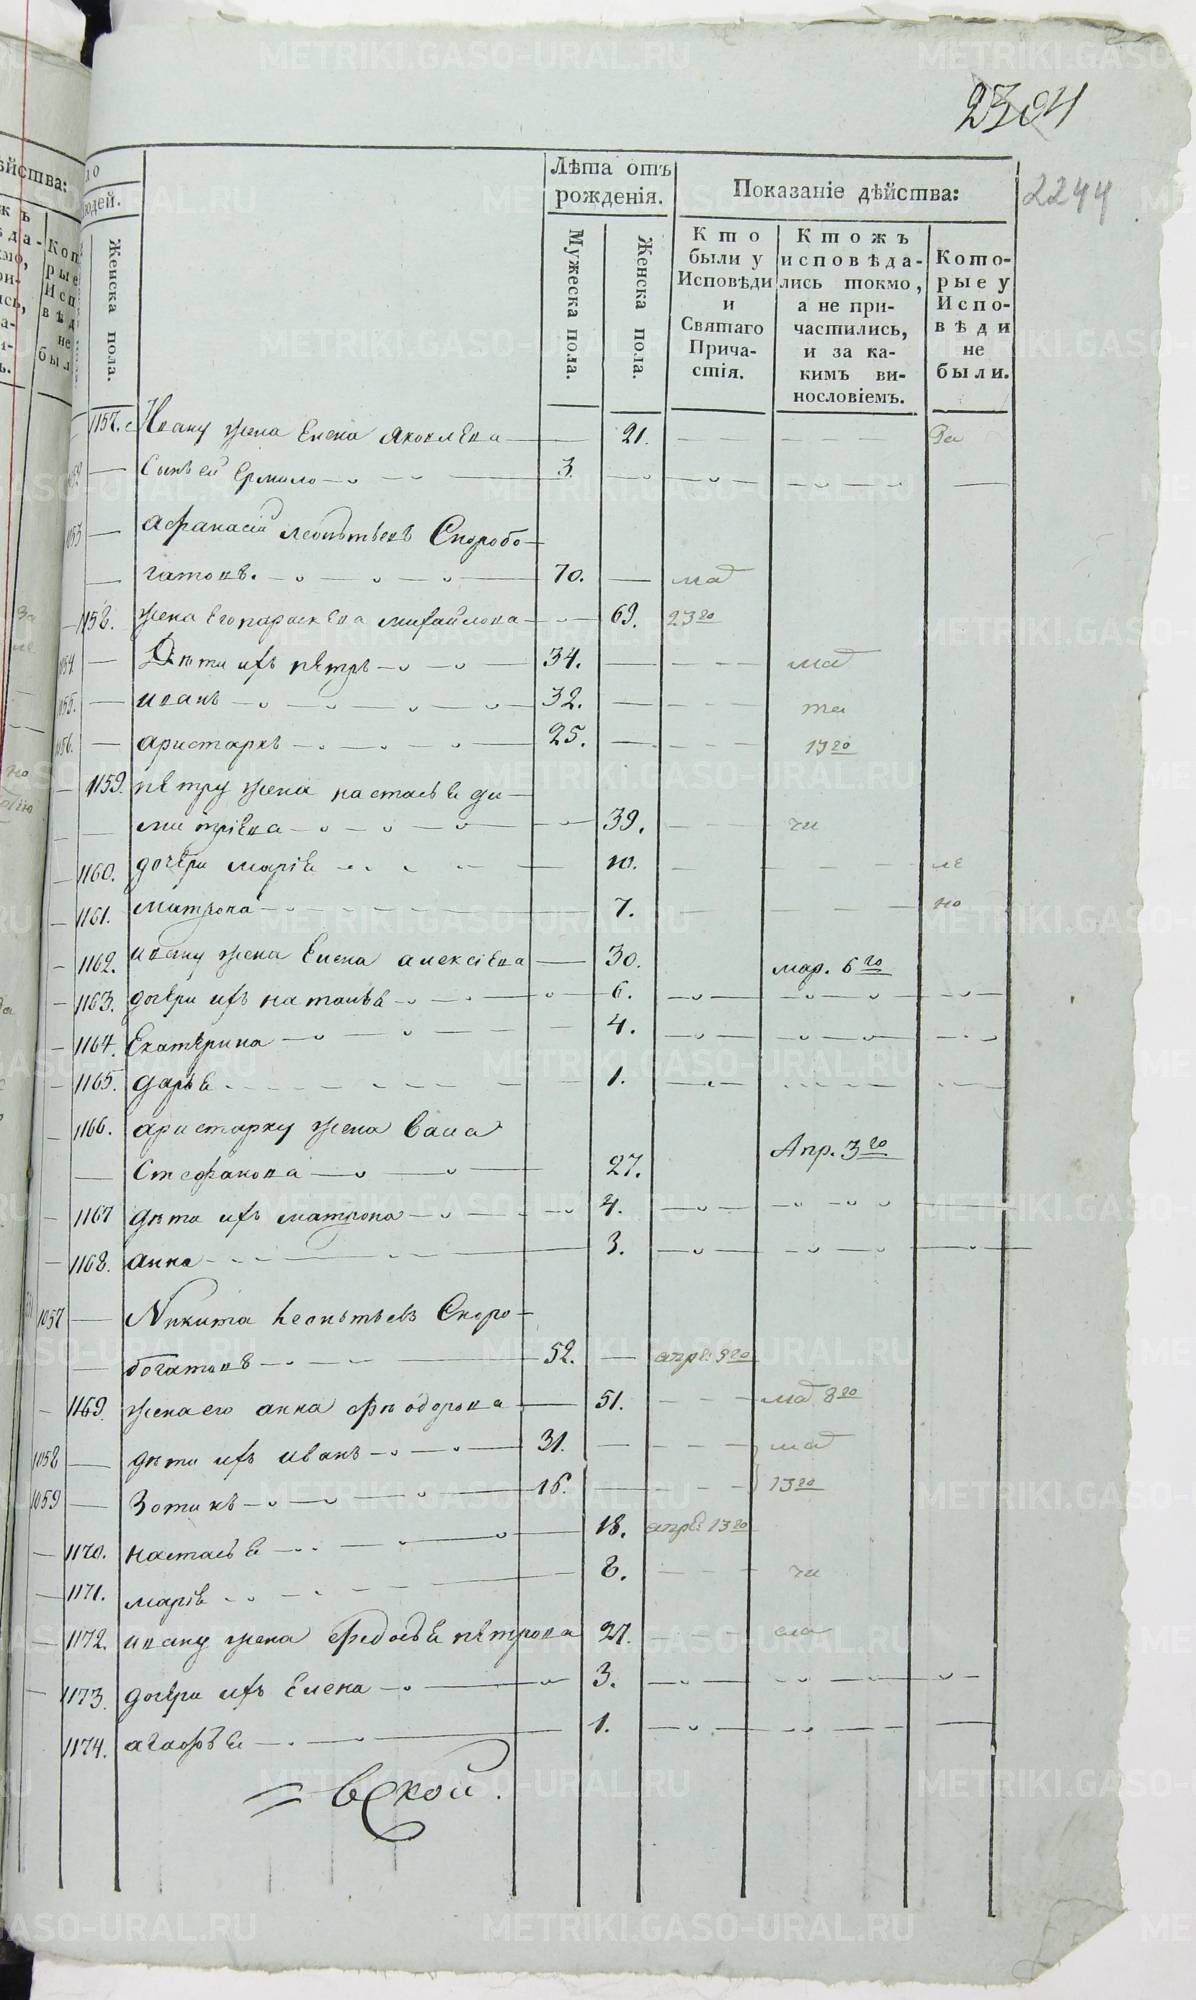 2304
2244
Лѣта отъ рожденія.
Показаніе дѣйства:
Женска пола.
Мужеска пола.
Женска пола.
Кто были у Исповѣди и Святаго Причастія.
Ктожъ исповѣдались токмо, а не причастились, и за какимъ винословіемъ.
Которые у Исповѣди не были.
1157. Ивану жена Елена Яковлева 21.
Сынъ ей Ермило 3.
1053 Афанасій Леонтьевъ Скоробо-
гатовъ. 70.
1158. жена его параскева михайлова 69. 23го
1054 Дѣти ихъ петръ 34.
1055. иванъ 32.
1056. аристархъ 25. 13го
1159. петру жена настасья ди-
митріева 39.
1160. дочери марія 10.
1161. матрона 7.
1162. ивану жена Елена алексіева 30. мар. 6го
1163. дочери ихъ наталья 6.
1164. Екатерина 4.
1165. дарья 1.
1166. аристарху жена васса
Стефанова 27. Апр. 3го
1167 дѣти ихъ матрона 4.
1168. анна 3.
1057 Никита Леонтьевъ Скоро-
богатовъ 52. апр: 3го
1169. жена его анна фѣодорова 51. 8го
1058 дѣти ихъ иванъ 31.
1059 Зотикъ 16. 13го
1170. настасья 18. апр: 13го
1171. марія 8.
1172. ивану жена федосья петрова 27.
1173. дочери ихъ Елена 3.
1174. агафья 1.
вской.
METRIKI.GASO-URAL.RU